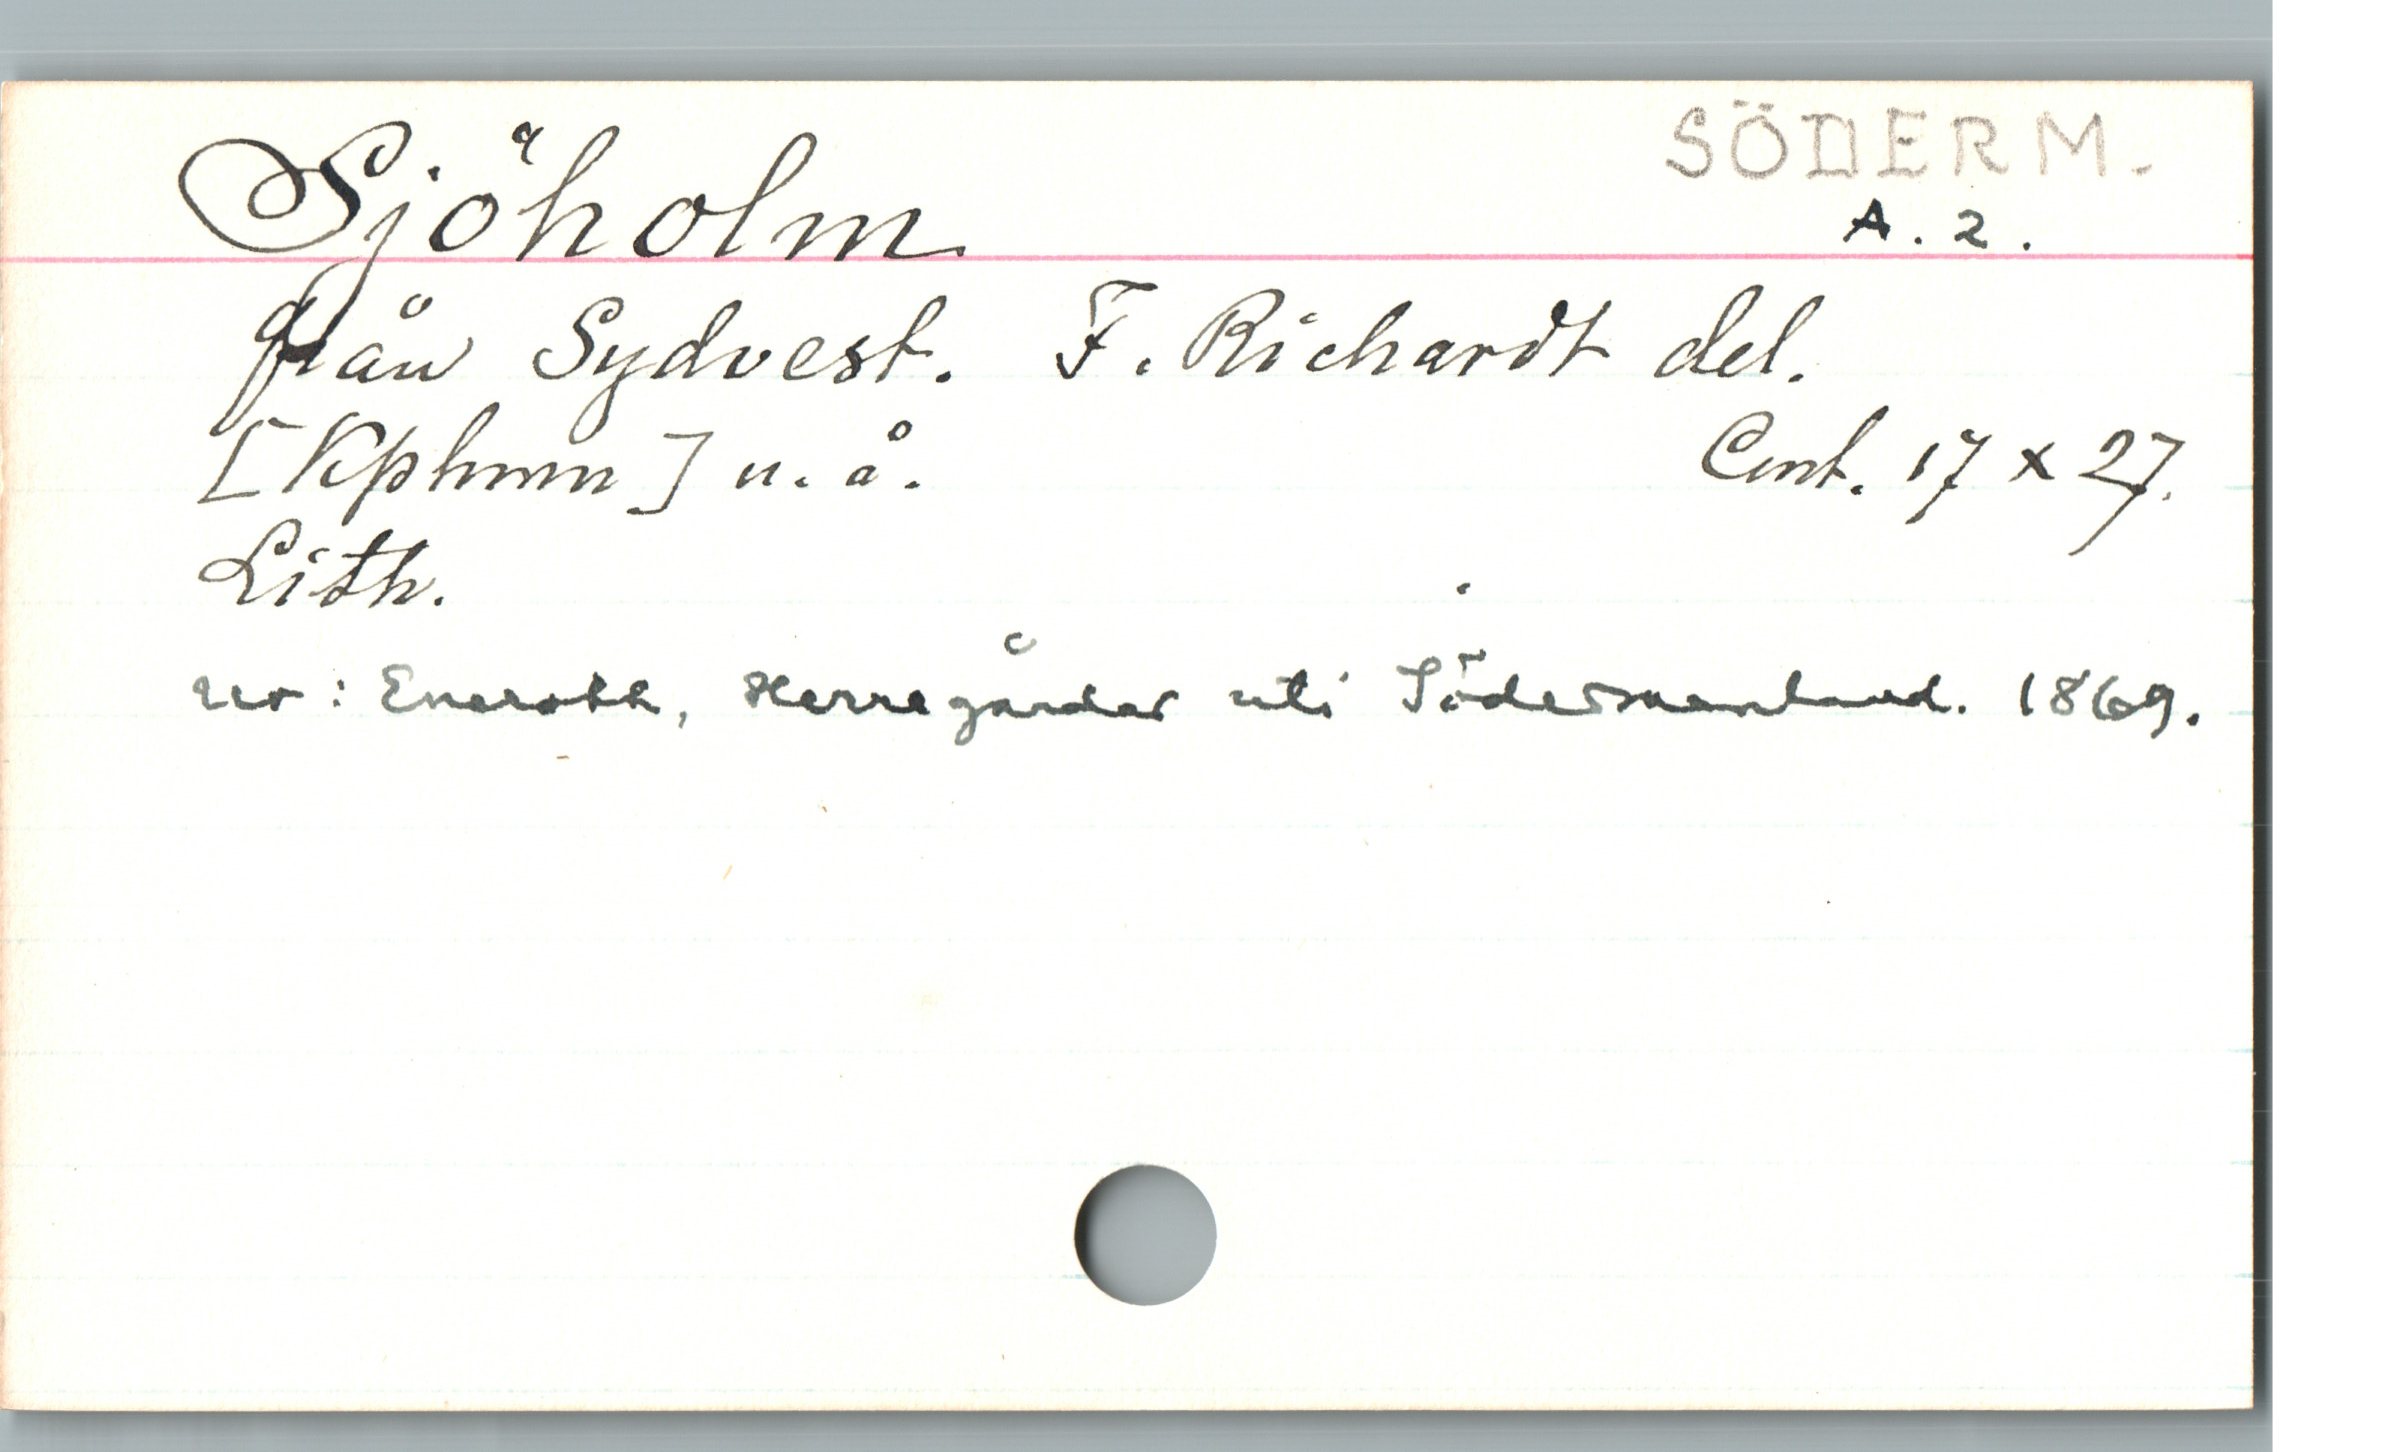 SÖDERM.
A. 2.
Sjöholm
från Sydvest. F. Richardt del.
[Kphmn] u. å. Cent. 17 x 27.
Lith.
ur: Eneroth, Herregårdar uti Södermanland. 1869.